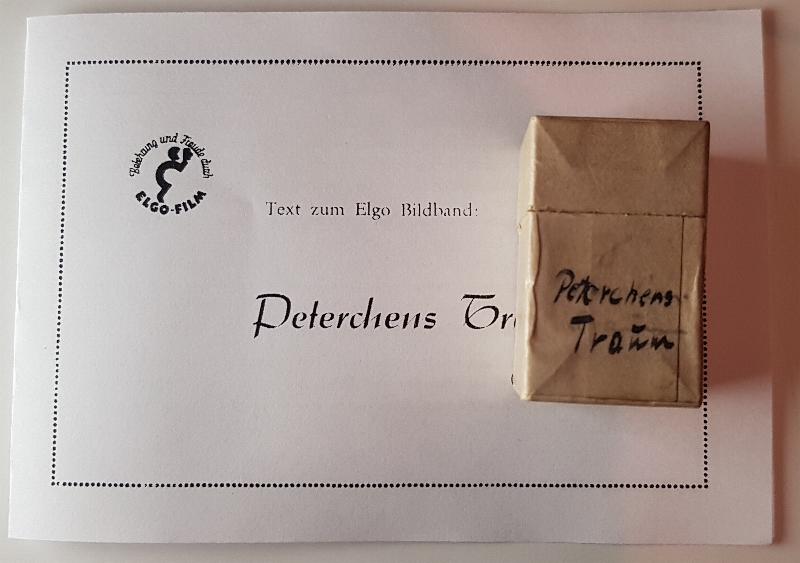 Belehrung und Freude durch
ELGO-FILM
Text zum Elgo Bildband:
Peterchens Tr
Peterchens
Traum